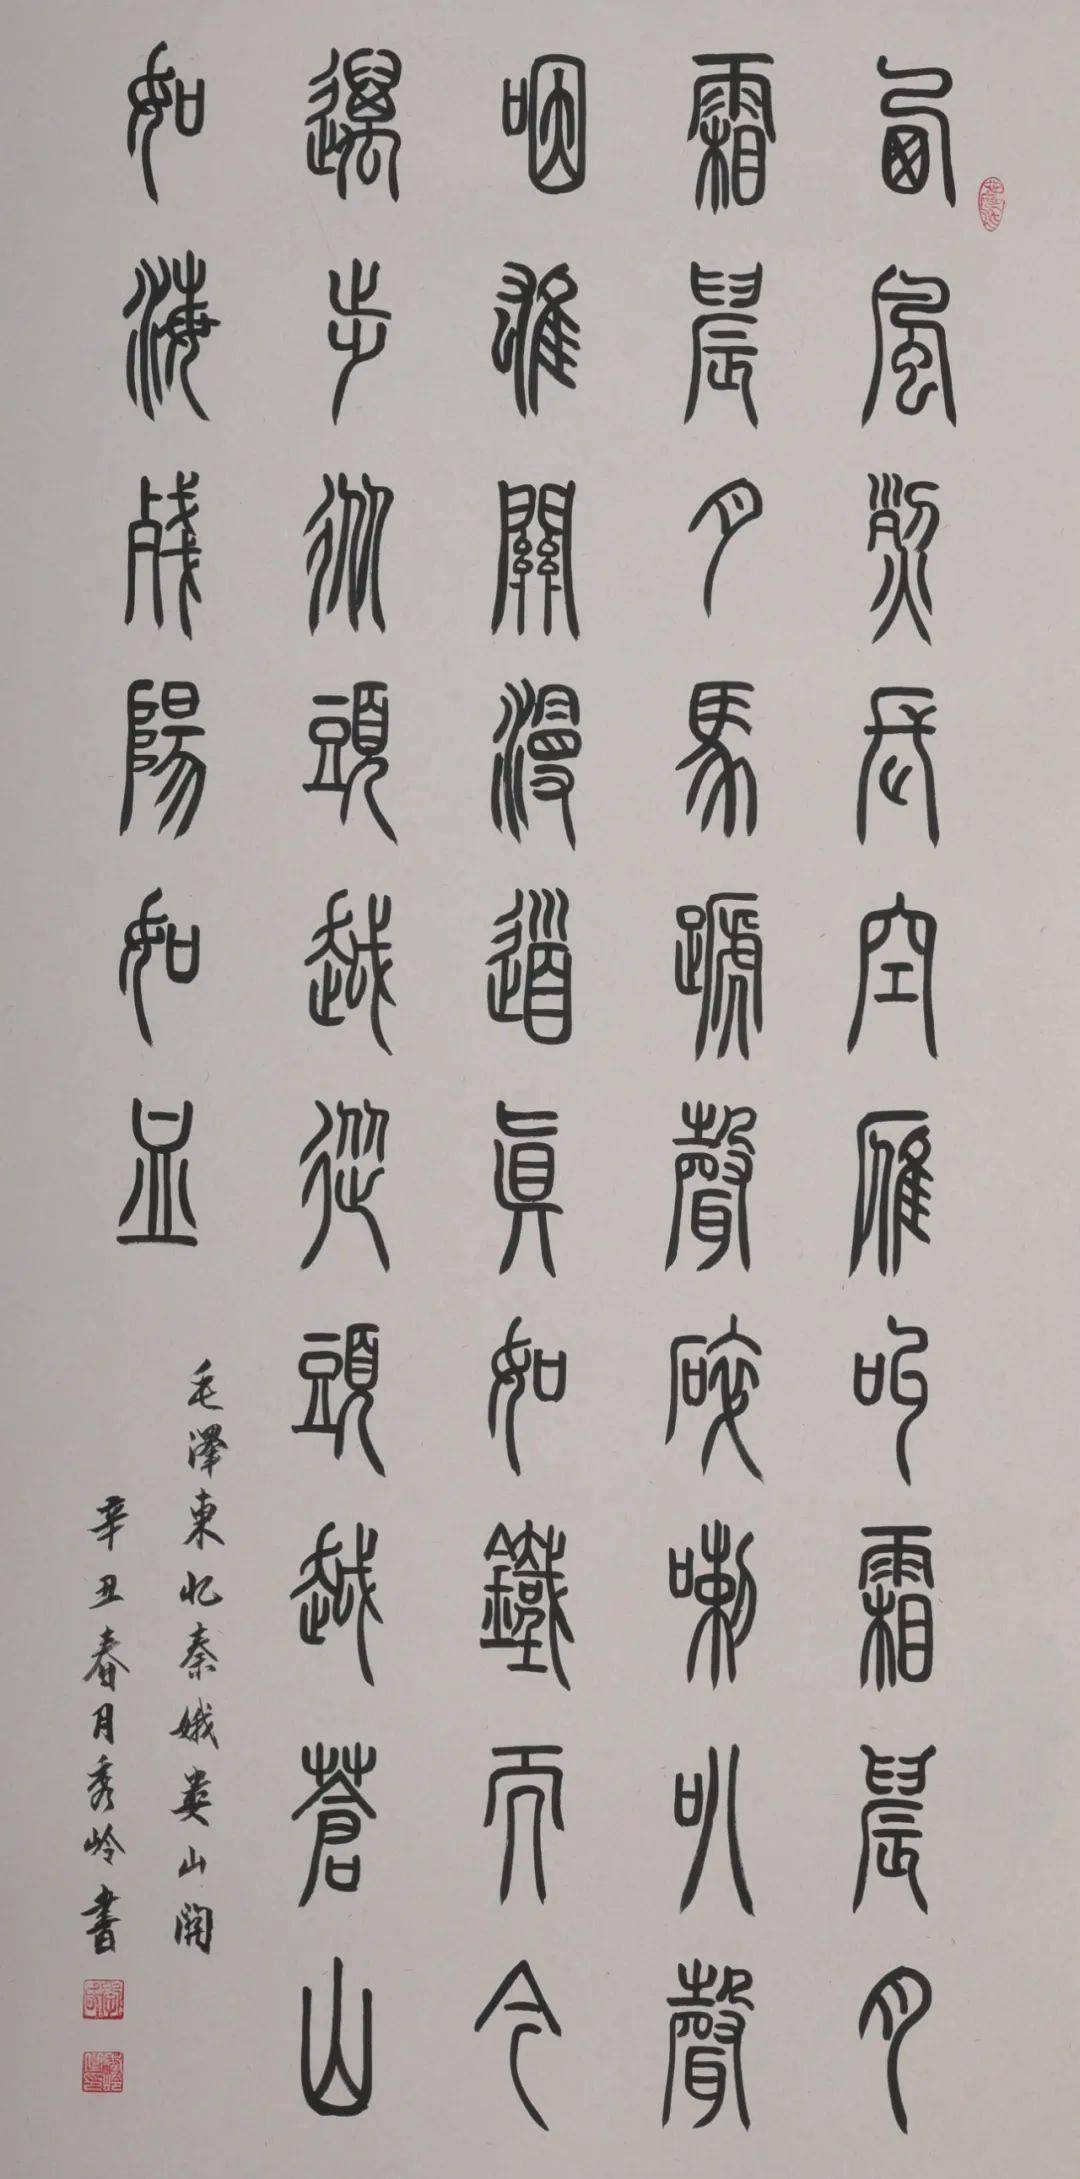 西風烈長空雁叫霜晨月
霜晨月馬蹏聲碎喇叭聲
咽雄關漫道眞如鐵而今
邁步從頭越從頭越蒼山
如海殘陽如血
毛澤東忆秦娥婁山関
辛丑春月秀岭書